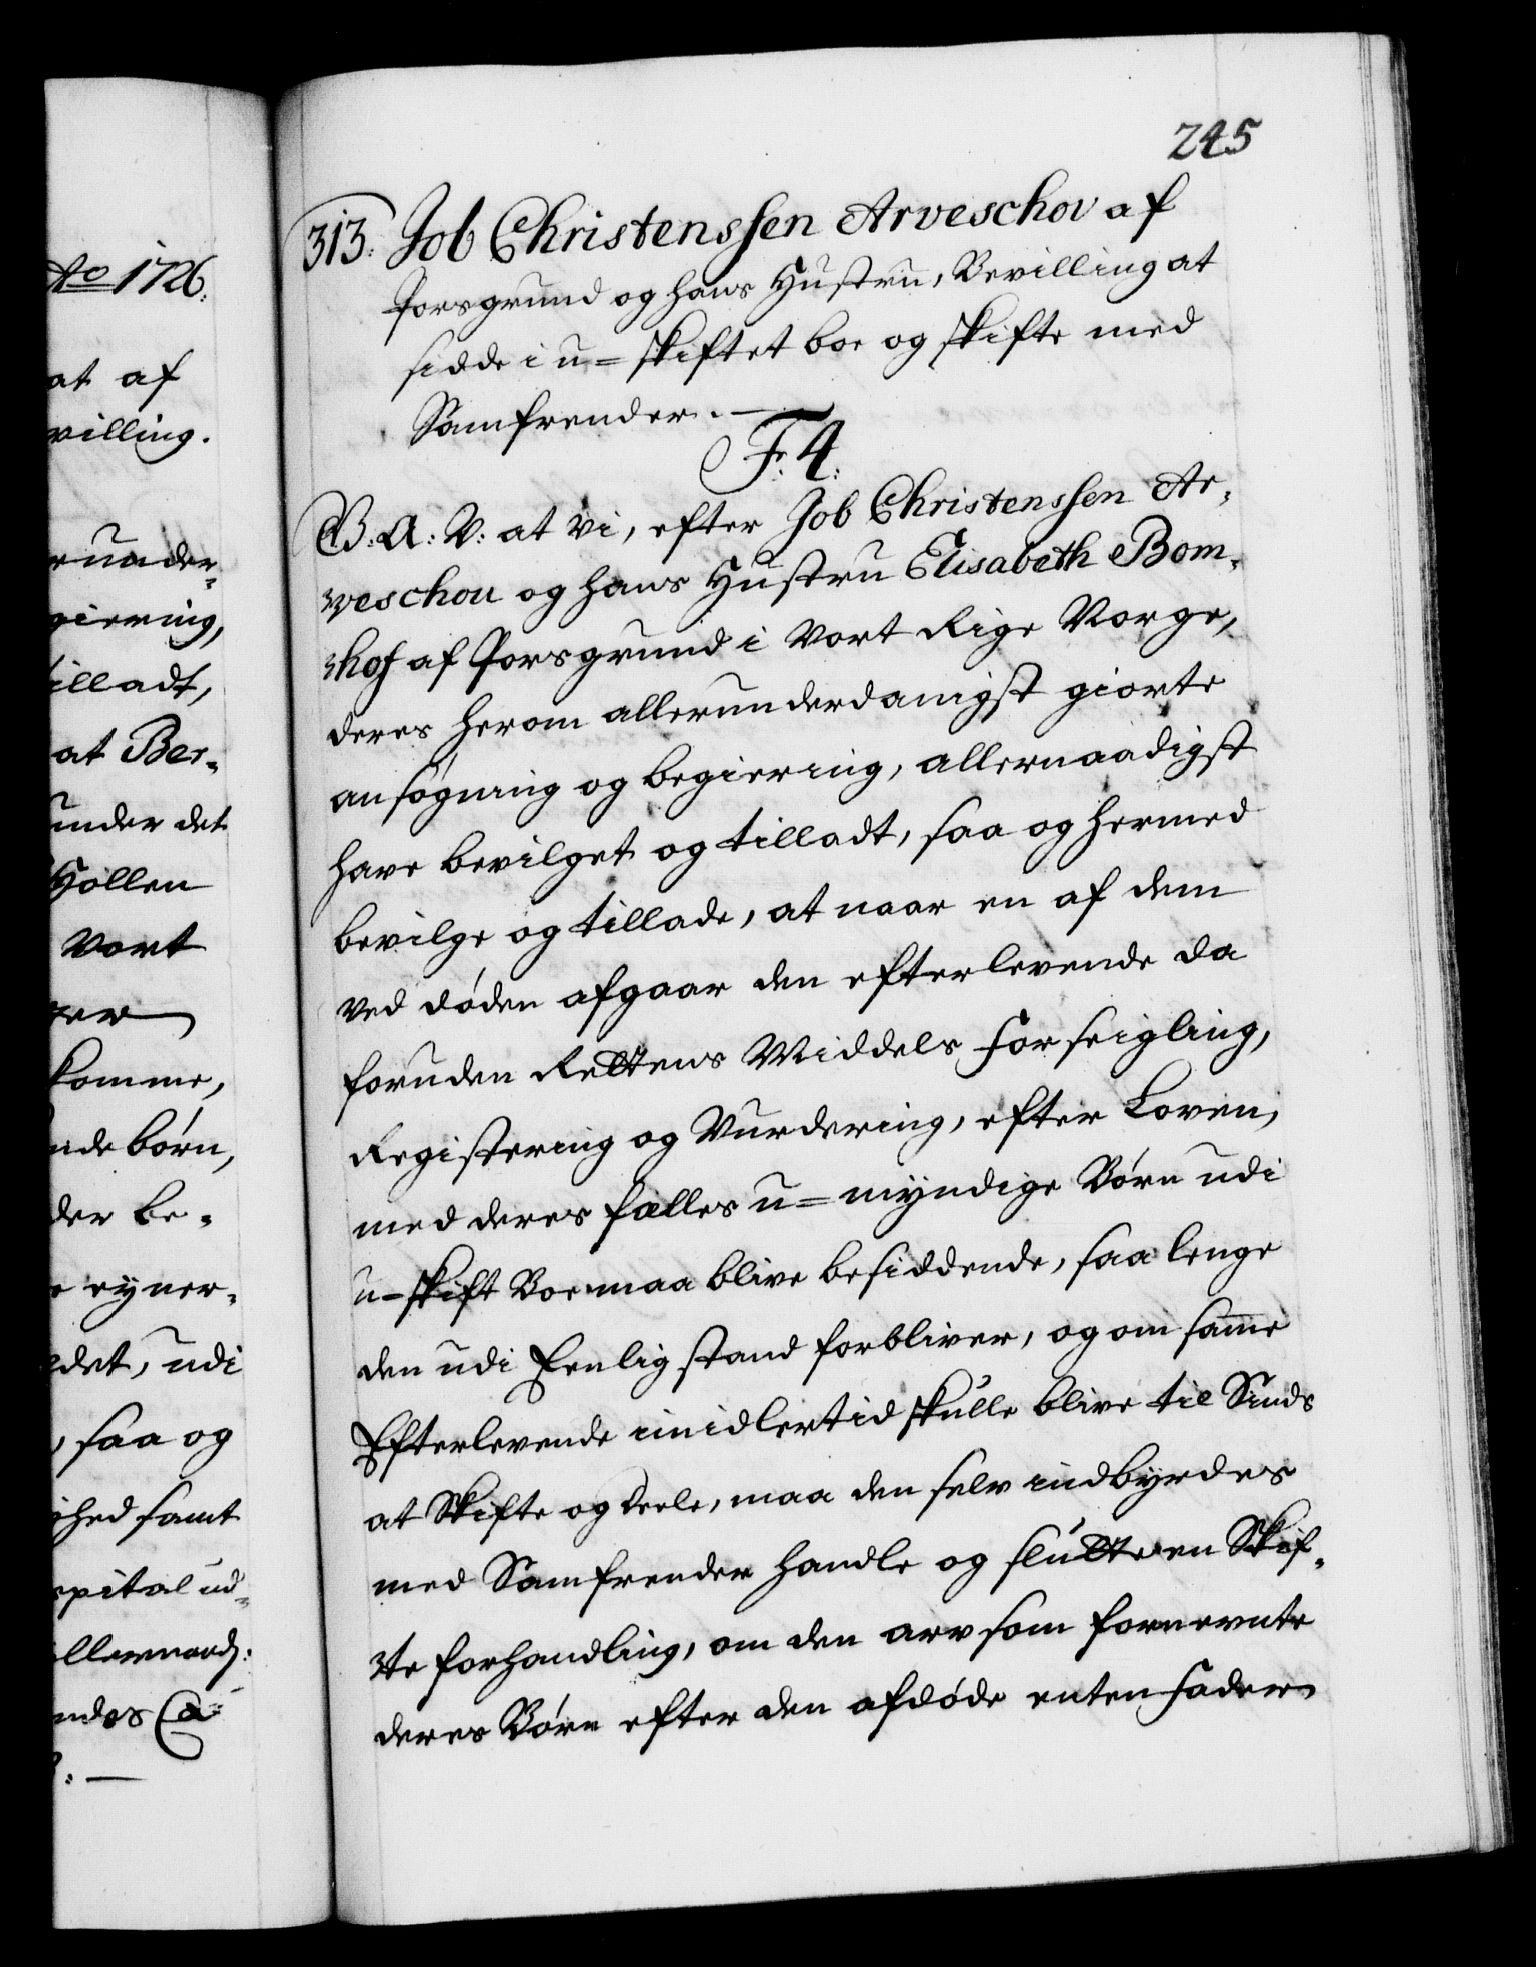 Ao 1726.
at af
villing.
runder-
giering,
illadt,
at Ber-
under det
Hollen
Vort
komme,
nde børn,
der be-
e eyner-
det, udi
, saa og
ghed samt
spital ud-
llernaad:
ndes Ca-
245
313. Job Christenssen Arveschov af
Porsgrund og hans Hustru, Bevilling at
sidde i u=skiftet boe og skifte med
Samfrender. —
F. 4.
G. A: V: at vi, efter Job Christenssen Ar-
veschou og hans Hustru Elisabeth Bom-
hof af Porsgrund i Vort Rige Norge,
deres herom allerunderdanigst giorte
ansøgning og begiering, allernaadigst
have bevilget og tilladt, saa og hermed
bevilge og tillade, at naar en af dem
ved døden afgaar den efterlevende da
foruden Rettens Middels Forseigling,
Registering og Vurdering, efter Loven,
med deres fælles u=myndige Børn udi
u-skift Boe maa blive besiddende, saa lenge
den udi Eenlig stand forbliver, og om samme
Efterlevende imidlertid skulle blive til Sinds
at Skifte og deele, maa den selv indbyrdes
med Samfrender handle og slutte en Skif-
te forhandling, om den arv som fornevnte
deres Børn efter den afdøde enten Fader